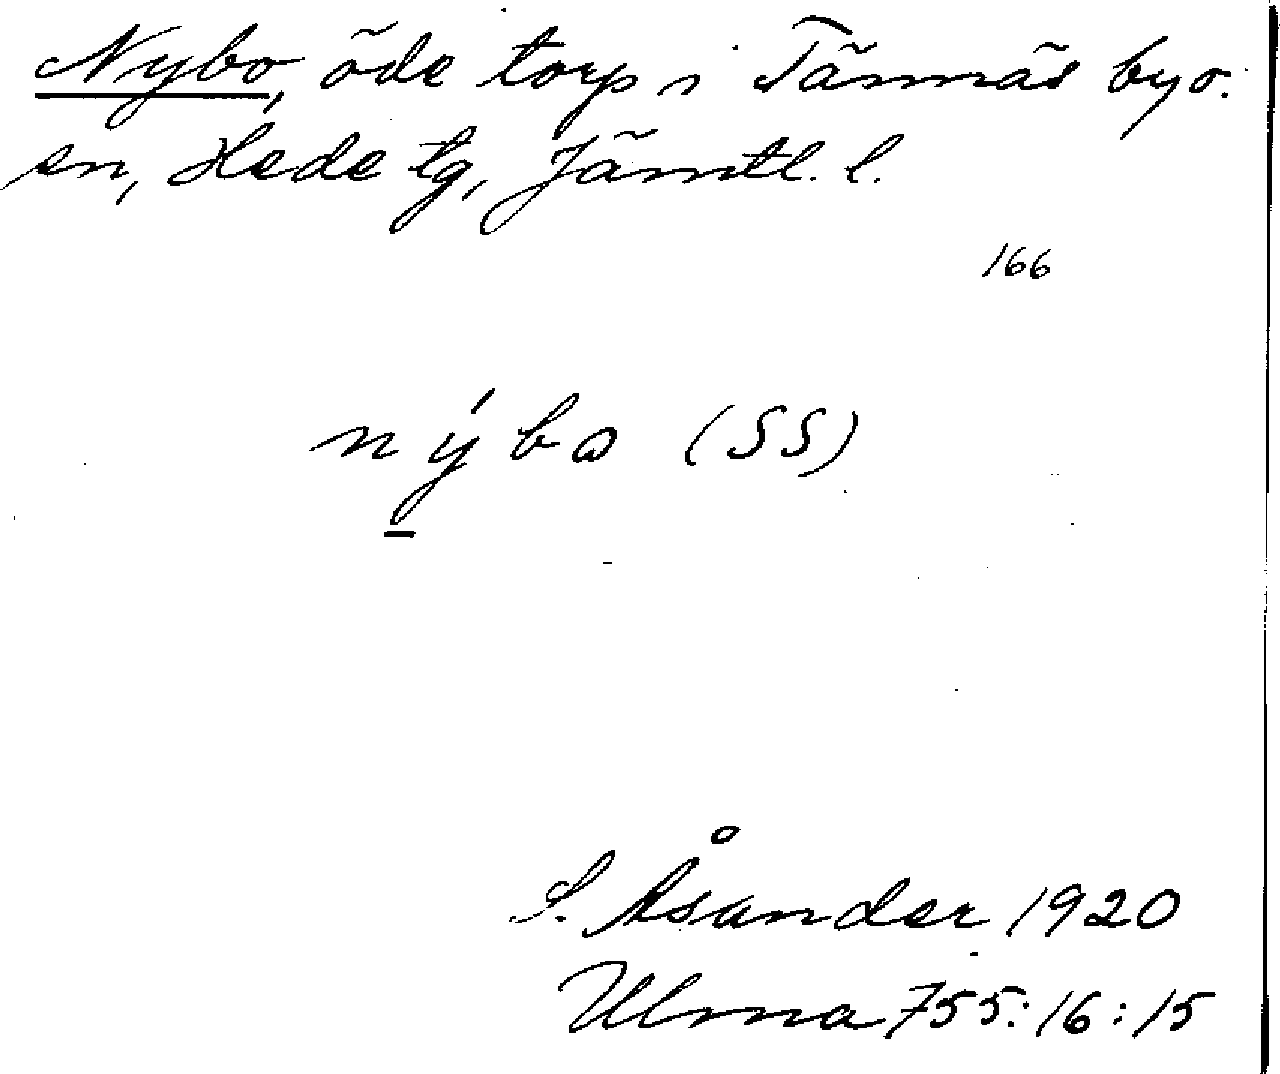 Nybo, öde torp i Tännäs by o.
sn, Hede tg, Jämtl. l.
166
nýbɷ (SS)
S. Åsander 1920
Ulma 755:16:15